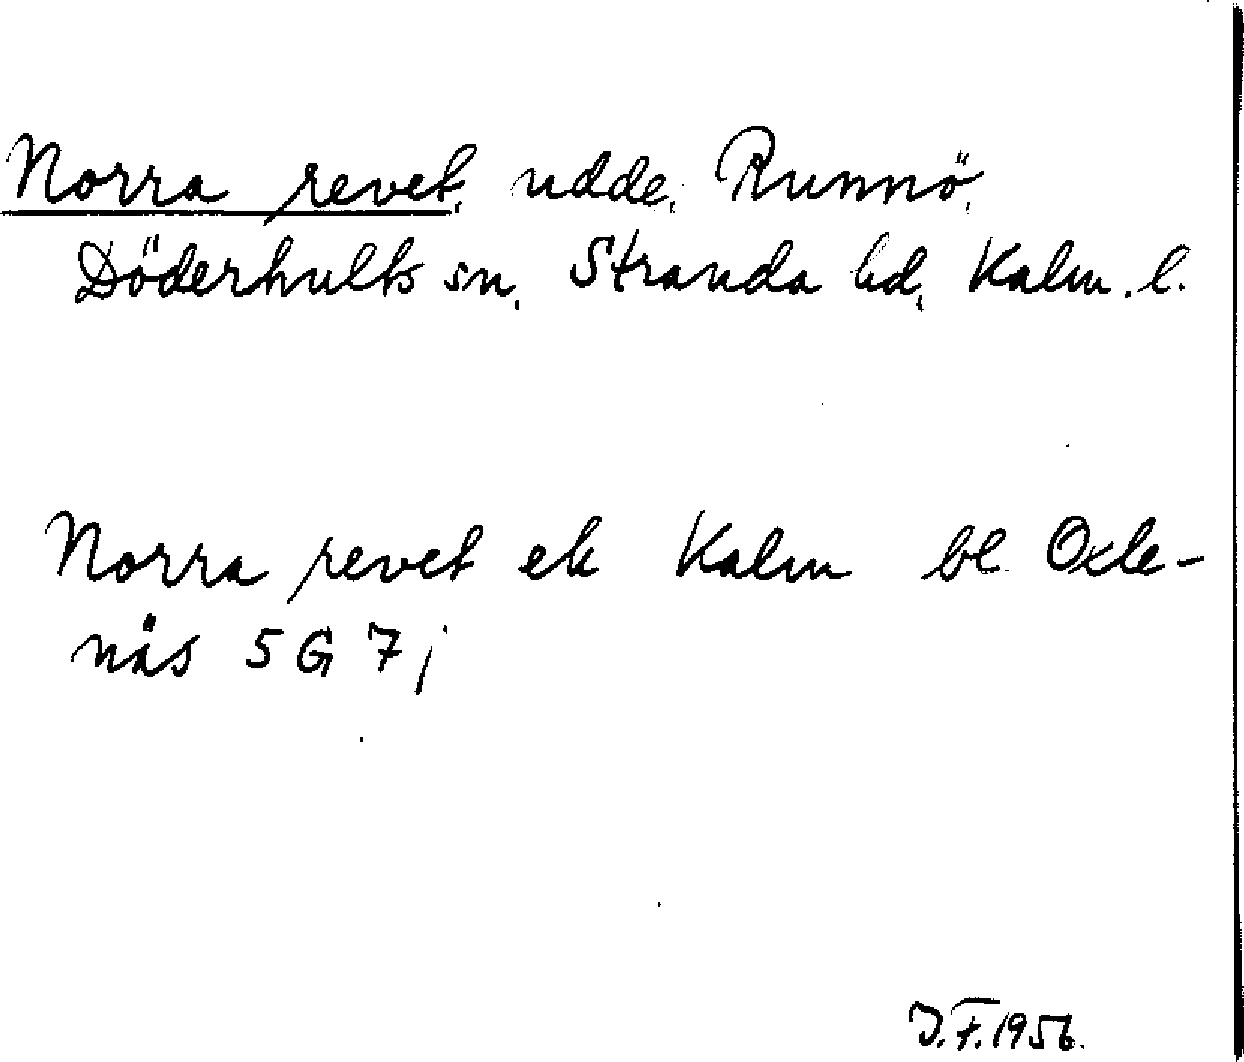 Norra revet, udde, Runnö,
Döderhults sn, Stranda hd, Kalm. l.
Norra revet ek Kalm bl Oxle-
näs 5 G 7 j
J.F. 1956.